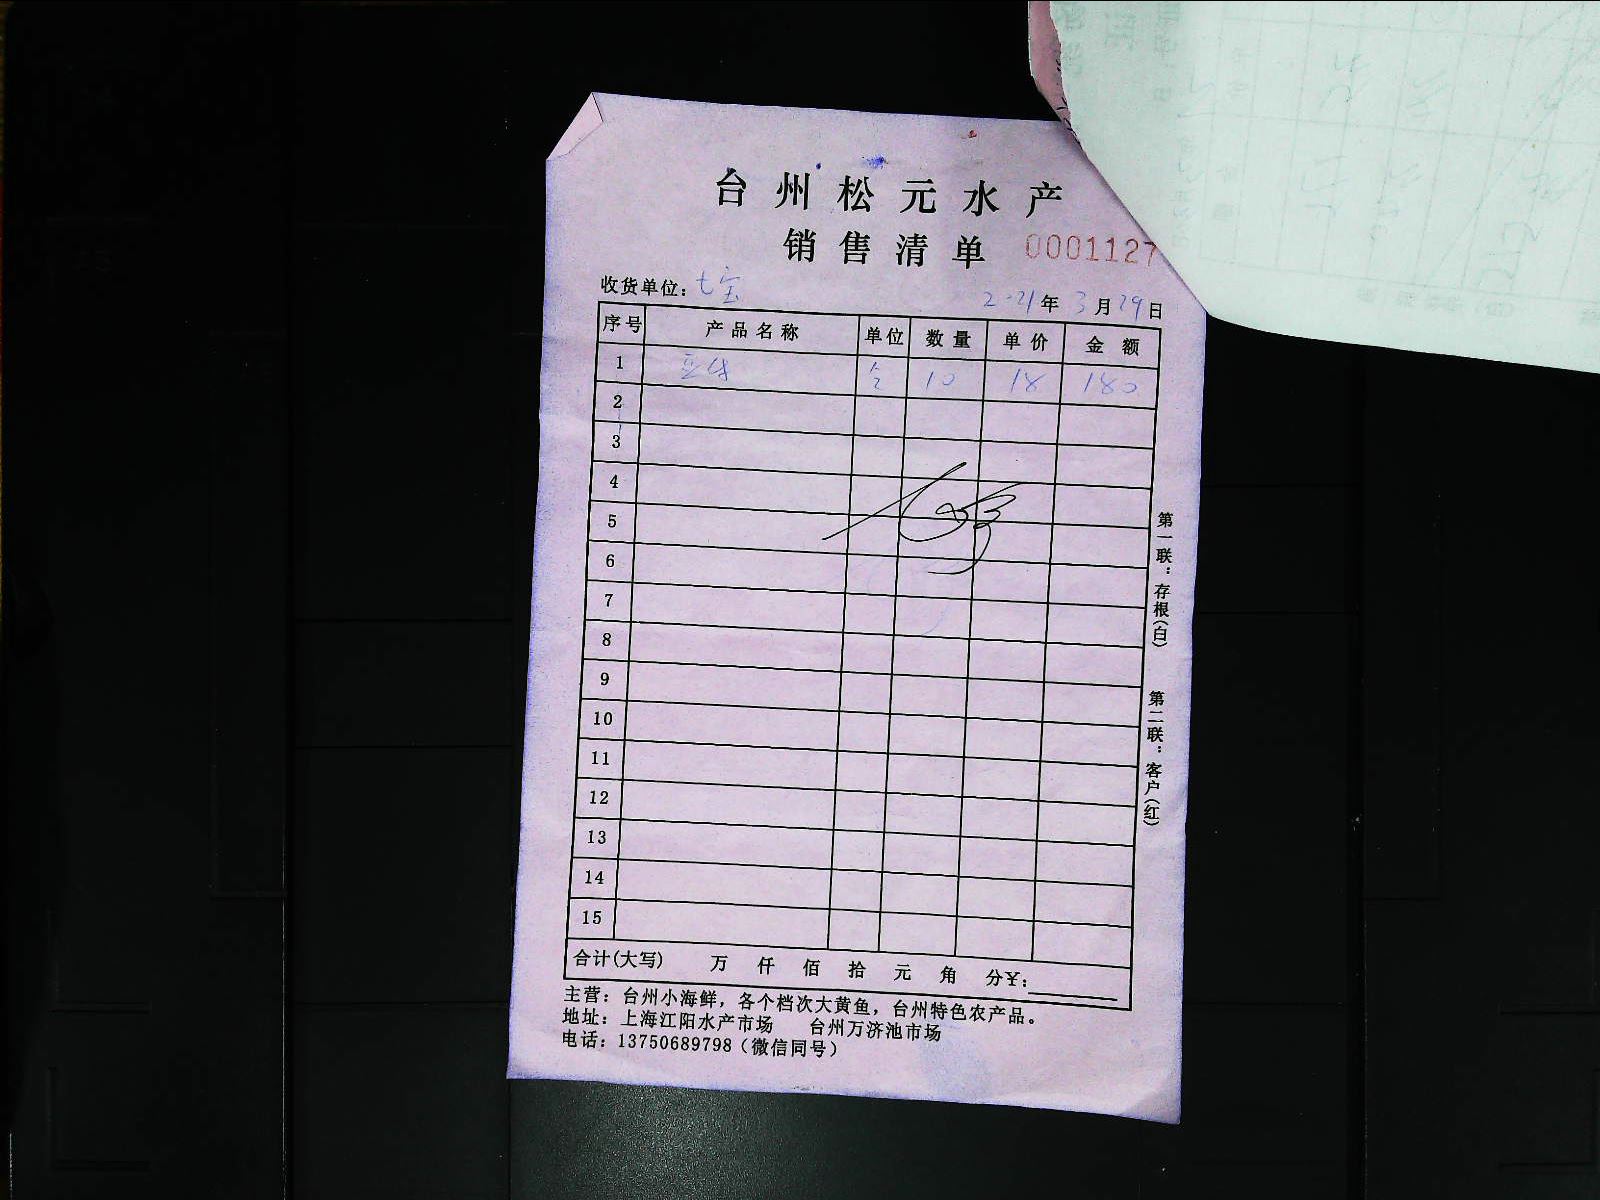 台州松元水产
销售清单 0001127
收货单位：七宝 2021年3月29日
序号 产品名称 单位 数量 单价 金额
1 10 18 180
2
3
4
5
6
7
8
9
10
11
12
13
14
15
合计(大写) 万 仟 佰 拾 元 角 分¥：
主营：台州小海鲜，各个档次大黄鱼，台州特色农产品。
地址：上海江阳水产市场 台州万济池市场
电话：13750689798（微信同号）
第一联：存根(白)
第二联：客户(红)